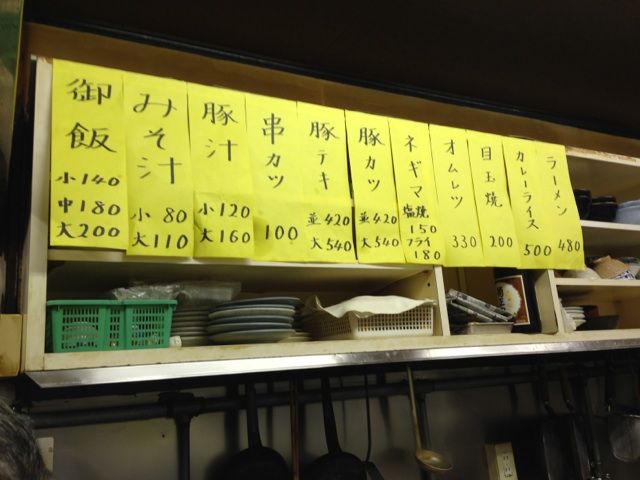 御飯
小140
中180
大200
みそ汁
小80
大110
豚汁
小120
大160
串カツ
100
豚テキ
並420
大540
豚カツ
並420
大540
ネギマ
塩焼
150
フライ
180
オムレツ
330
目玉焼
200
カレーライス
500
ラーメン
480